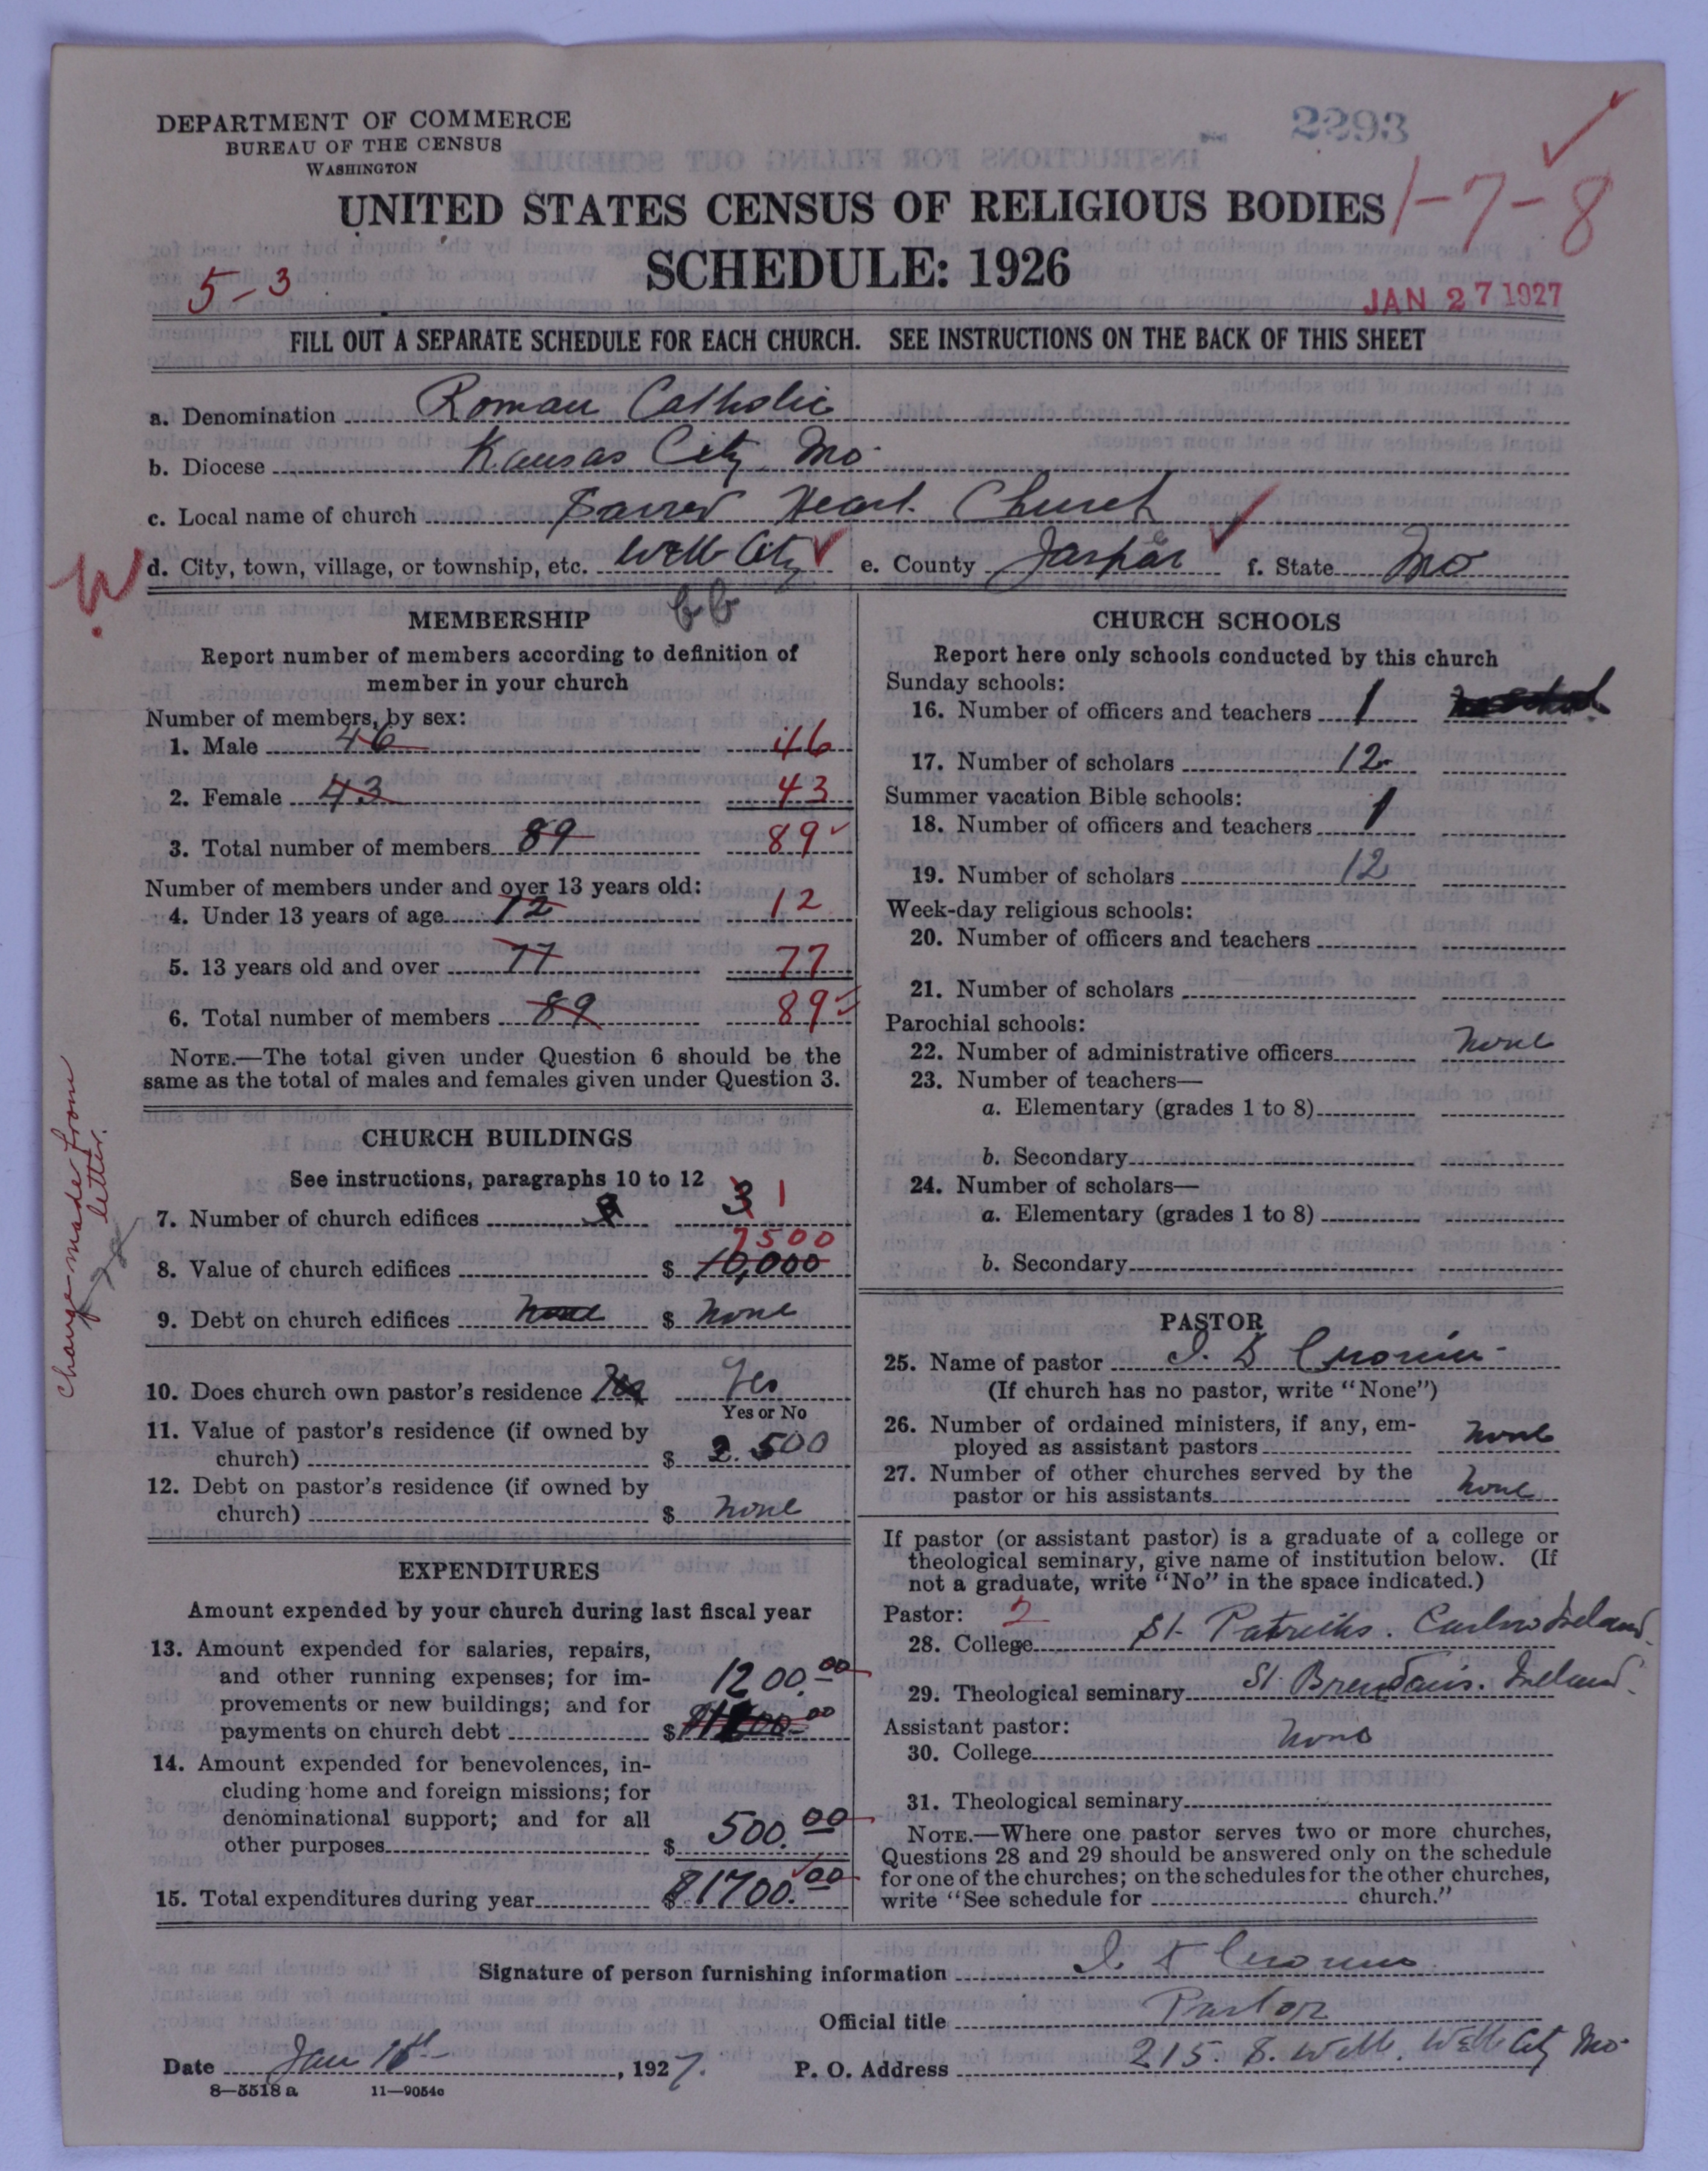 DEPARTMENT OF COMMERCE
BUREAU OF THE CENSUS
WASHINGTON
2293
UNITED STATES CENSUS OF RELIGIOUS BODIES
1-7-8
SCHEDULE: 1926
5-3
JAN 27 1927
FILL OUT A SEPARATE SCHEDULE FOR EACH CHURCH. SEE INSTRUCTIONS ON THE BACK OF THIS SHEET
a. Denomination Roman Catholic
b. Diocese Kansas City Mo
c. Local name of church Sacred Heart Church
d. City, town, village, or township, etc. Webb City e. County Jasper f. State Mo
W
bb
MEMBERSHIP
Report number of members according to definition of
member in your church
Number of members, by sex:
1. Male 46 46
2. Female 43 43
3. Total number of members 89 89
Number of members under and over 13 years old:
4. Under 13 years of age 12 12
5. 13 years old and over 77 77
6. Total number of members 89 89
NOTE.—The total given under Question 6 should be the
same as the total of males and females given under Question 3.
CHURCH BUILDINGS
See instructions, paragraphs 10 to 12
7. Number of church edifices 3 1
7500
8. Value of church edifices $ 10,000
9. Debt on church edifices none $ none
10. Does church own pastor's residence Yes Yes
Yes or No
11. Value of pastor's residence (if owned by
church) $ 2.500
12. Debt on pastor's residence (if owned by
church) $ none
change made from
letter.
EXPENDITURES
Amount expended by your church during last fiscal year
13. Amount expended for salaries, repairs,
and other running expenses; for im-
provements or new buildings; and for 1200.00
payments on church debt $
14. Amount expended for benevolences, in-
cluding home and foreign missions; for
denominational support; and for all
other purposes $ 500.00
15. Total expenditures during year $1700.00
CHURCH SCHOOLS
Report here only schools conducted by this church
Sunday schools:
16. Number of officers and teachers 1
17. Number of scholars 12
Summer vacation Bible schools:
18. Number of officers and teachers 1
19. Number of scholars 12
Week-day religious schools:
20. Number of officers and teachers
21. Number of scholars
Parochial schools:
22. Number of administrative officers none
23. Number of teachers—
a. Elementary (grades 1 to 8)
b. Secondary
24. Number of scholars—
a. Elementary (grades 1 to 8)
b. Secondary
PASTOR
25. Name of pastor J. D Cronin
(If church has no pastor, write "None")
26. Number of ordained ministers, if any, em-
ployed as assistant pastors none
27. Number of other churches served by the
pastor or his assistants none
If pastor (or assistant pastor) is a graduate of a college or
theological seminary, give name of institution below. (If
not a graduate, write "No" in the space indicated.)
Pastor: 2
28. College St Patricks. Carlow Ireland.
29. Theological seminary St Brendans. Ireland.
Assistant pastor:
30. College none
31. Theological seminary
NOTE.—Where one pastor serves two or more churches,
Questions 28 and 29 should be answered only on the schedule
for one of the churches; on the schedules for the other churches,
write "See schedule for church."
Signature of person furnishing information J. D Cronin
Official title Pastor
Date Jan 18th, 1927. P. O. Address 215. S. Webb. Webb City Mo
8—5518 a 11—9054c